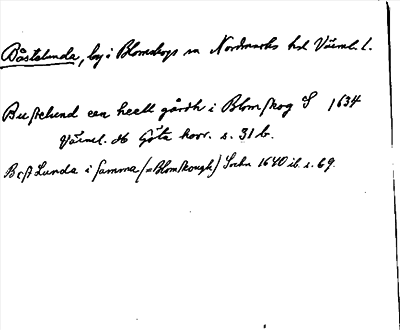 Båstelunda, by i Blomskogs sn Nordmarks hd Värml. l.
Bustelund een heelt gårdh i Blomskog S 1634
Värml. o Göta korr. s. 31 b.
Best Lunda i samma (=Blomskough) Sochn 1640 ib. s. 69.